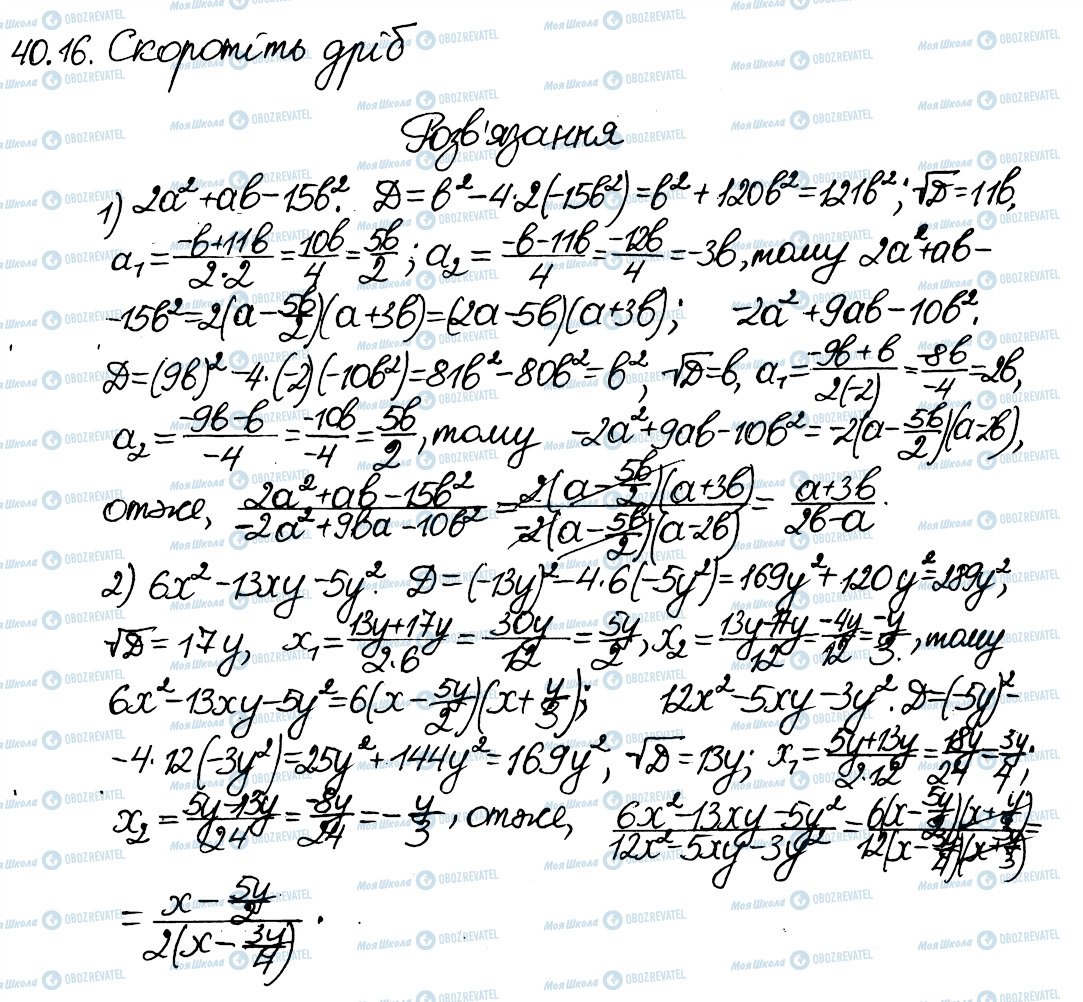 40.16. Скоротіть дріб
Розв'язання
1) 2a² + ab − 15b². D = b² − 4·2(−15b²) = b² + 120b² = 121b²; √D = 11b,
a₁ = (−b+11b)/(2·2) = 10b/4 = 5b/2; a₂ = (−b−11b)/4 = −12b/4 = −3b, тому 2a² + ab −
−15b² = 2(a − 5b/2)(a+3b) = (2a−5b)(a+3b); −2a² + 9ab − 10b².
D = (9b)² − 4·(−2)(−10b²) = 81b² − 80b² = b², √D = b, a₁ = (−9b+b)/(2(−2)) = −8b/−4 = 2b,
a₂ = (−9b−b)/−4 = −10b/−4 = 5b/2, тому −2a² + 9ab − 10b² = −2(a − 5b/2)(a−2b),
отже, (2a² + ab − 15b²)/(−2a² + 9ba − 10b²) = 2(a − 5b/2)(a+3b)/(−2(a − 5b/2)(a−2b)) = (a+3b)/(2b−a).
2) 6x² − 13xy − 5y². D = (−13y)² − 4·6(−5y²) = 169y² + 120y² = 289y²,
√D = 17y, x₁ = (13y+17y)/(2·6) = 30y/12 = 5y/2, x₂ = (13y−17y)/12 = −4y/12 = −y/3, тому
6x² − 13xy − 5y² = 6(x − 5y/2)(x + y/3); 12x² − 5xy − 3y². D = (−5y)² −
−4·12(−3y²) = 25y² + 144y² = 169y², √D = 13y; x₁ = (5y+13y)/(2·12) = 18y/24 = 3y/4;
x₂ = (5y−13y)/24 = −8y/24 = −y/3, отже, (6x² − 13xy − 5y²)/(12x² − 5xy − 3y²) = 6(x − 5y/2)(x + y/3)/(12(x − 3y/4)(x + y/3)) =
= (x − 5y/2)/(2(x − 3y/4)).
Моя Школа OBOZREVATEL